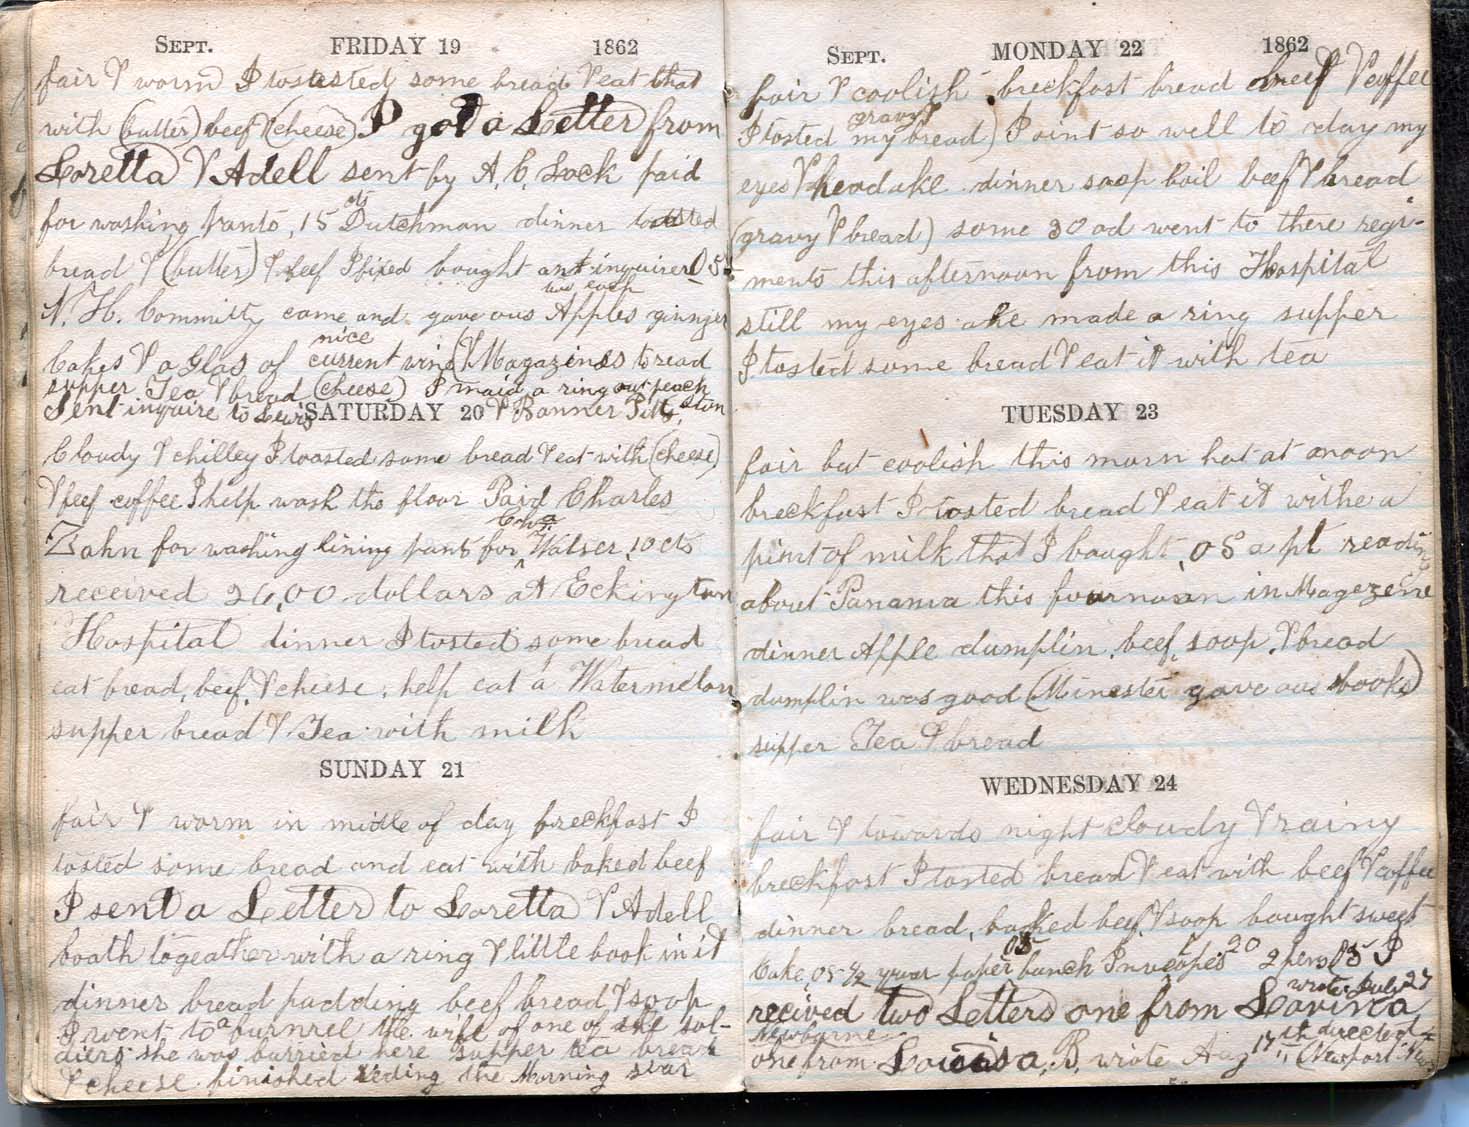 SEPT. FRIDAY 19 1862
fair & worm I tosasted some bread & eat that
with (butter) beef (cheese) I got a Letter from
Loretta & Adell sent by A. C. Lock paid
for washing pants, 15 cts Dutchman dinner toasted
bread & (butter) & beef I fixed bought an inquirer 05
N. H. Committy came and gave ous two each Apples ginnger
Cakes & a Glas of nice current wine & Magazines to read
supper Tea & bread (cheese) I maid a ring out peach ston
Sent inquire to Lewis & Banner Pitts,
SATURDAY 20
Cloudy & chilley I toasted some bread & eat with (cheese)
& beef coffee I help wash the floor Paid Charles
Zahn for washing lining pants for Walser, 10 cts
received 26,00 dollars at Eckington
Hospital dinner I tosted some bread
eat bread, beef, & cheese, help eat a Watermelon
supper bread & Tea with milk
SUNDAY 21
fair & worm in midle of day breckfast I
tosted some bread and eat with baked beef
I sent a Letter to Loretta & Adell
boath togeather with a ring & little book in it
dinner bread pudding beef bread & soop
I went to a furnrel the wife of one of the sol-
diers she was burried here supper tea bread
& cheese finished reding the Morning star
SEPT. MONDAY 22 1862
fair & coolish breckfast bread beef & coffee
I tosted my bread) gravy & I aint so well to day my
eyes & headake dinner soop boil beef & bread
(gravy & bread) some 30 od went to there regi-
ments this afternoon from this Hospital
still my eyes ake made a ring supper
I tosted some bread & eat it with tea
TUESDAY 23
fair but coolish this morn hot at anoon
breckfast I tosted bread & eat it withe a
pint of milk that I bought, 05 a pt reading
about Panama this fournoon in Magezene
dinner Apple dumplin, beef, soop, & bread
dumplin was good (Minester gave ous books)
supper Tea & bread
WEDNESDAY 24
fair & towards night cloudy & rainy
breckfast I tosted bread & eat with beef & coffee
dinner bread, backed beef, & soop bought sweet
Cake, 05 - 1/2 paper 05 bunch Invealopes 20 2 pens 05 I
recived two Letters one from Lavina, wrote July 27
Newburne
one from Louisa, B, wrote Aug 17th directed (Newport News